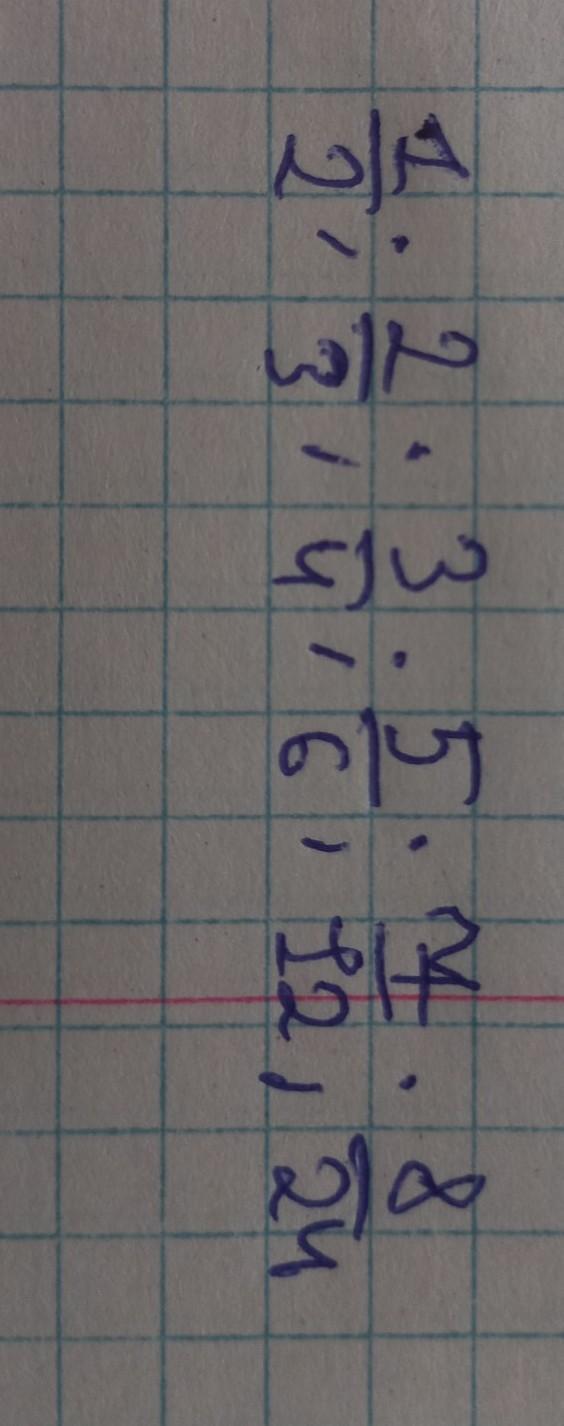 1/2; 2/3; 3/4; 5/6; 7/12; 8/24